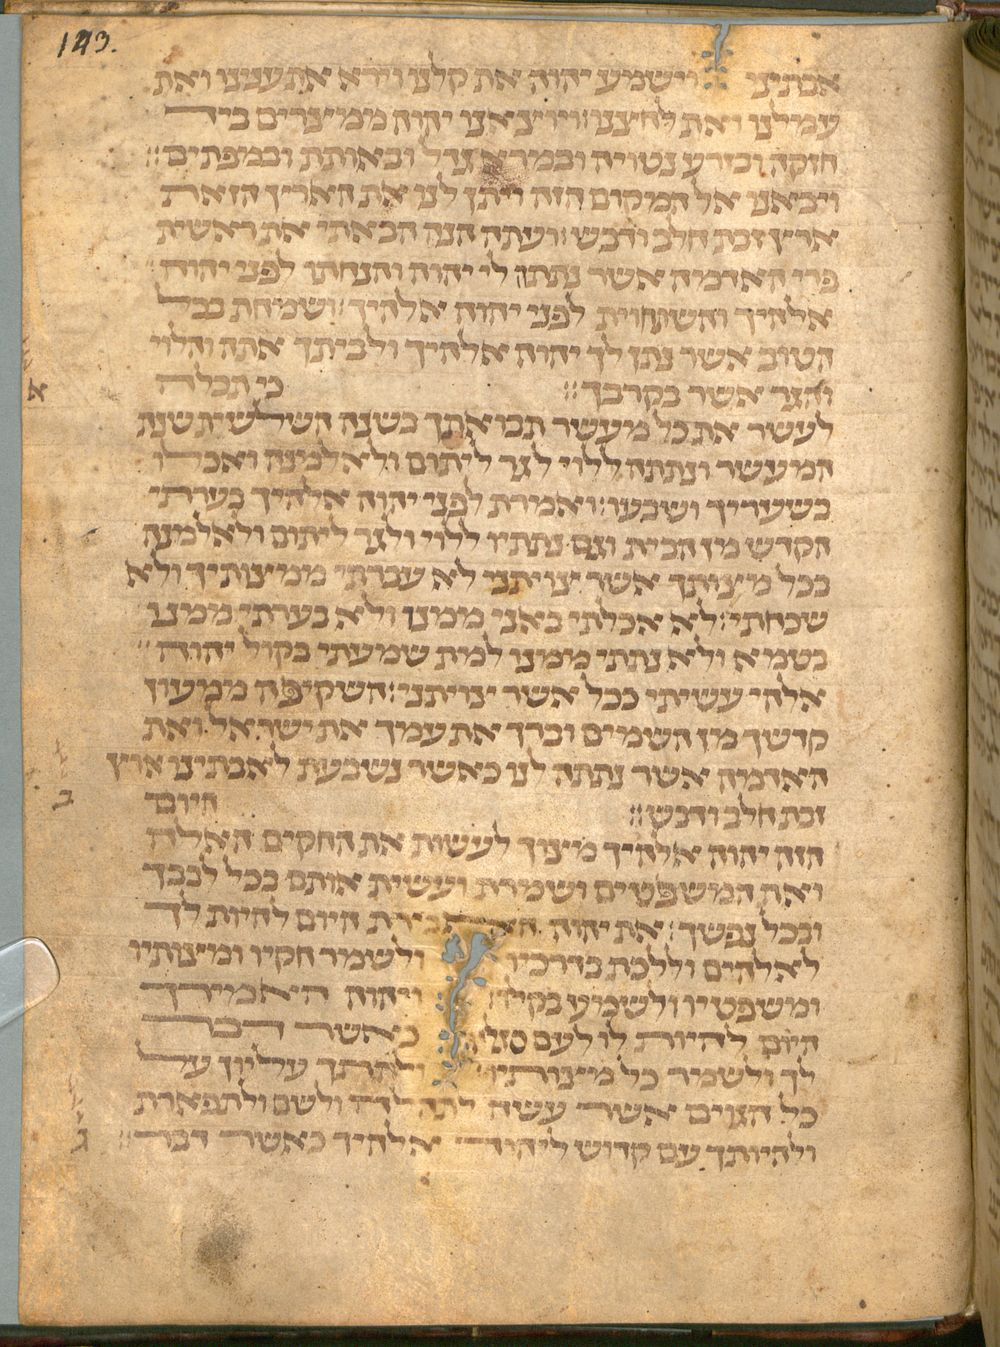 143.
אבתינו וישמע יהוה את קלנו וירא את ענינו ואת
עמלנו ואת לחצנו׃ ויוצאנו יהוה ממצרים ביד
חזקה ובזרע נטויה ובמרא גדל ובאותת ובמפתים׃
ויבאנו אל המקום הזה ויתן לנו את הארץ הזאת
ארץ זבת חלב ודבש׃ ועתה הנה הבאתי את ראשית
פרי האדמה אשר נתתן לי יהוה והנחתו לפני יהוה
אלהיך והשתחוית לפני יהוה אלהיך׃ ושמחת בכל
הטוב אשר נתן לך יהוה אלהיך ולביתך אתה והלוי
והגר אשר בקרבך׃ כי תכלה
א
לעשר את כל מעשר תבואתך בשנה השלשית שנת
המעשר ונתתה ללוי לגר ליתום ולאלמנה ואכלו
בשעריך ושבעו׃ ואמרת לפני יהוה אלהיך בערתי
הקדש מן הבית וגם נתתיו ללוי ולגר ליתום ולאלמנה
ככל מצותך אשר צויתני לא עברתי ממצותיך ולא
שכחתי׃ לא אכלתי באני ממנו ולא בערתי ממנו
בטמא ולא נתתי ממנו למת שמעתי בקול יהוה
אלהי עשיתי ככל אשר צויתני׃ השקיפה ממעון
קדשך מן השמים וברך את עמך את ישראל ואת
האדמה אשר נתתה לנו כאשר נשבעת לאבתינו ארץ
זבת חלב ודבש׃ היום
ב
הזה יהוה אלהיך מצוך לעשות את החקים האלה
ואת המשפטים ושמרת ועשית אותם בכל לבבך
ובכל נפשך׃ את יהוה האמרת היום להיות לך
לאלהים וללכת בדרכיו ולשמר חקיו ומצותיו
ומשפטיו ולשמע בקולו ויהוה האמירך
היום להיות לו לעם סגלה כאשר דבר
לך ולשמר כל מצותיו ולתתך עליון על
כל הגוים אשר עשה לתהלה ולשם ולתפארת
ולהיותך עם קדוש ליהוה אלהיך כאשר דבר׃
ג